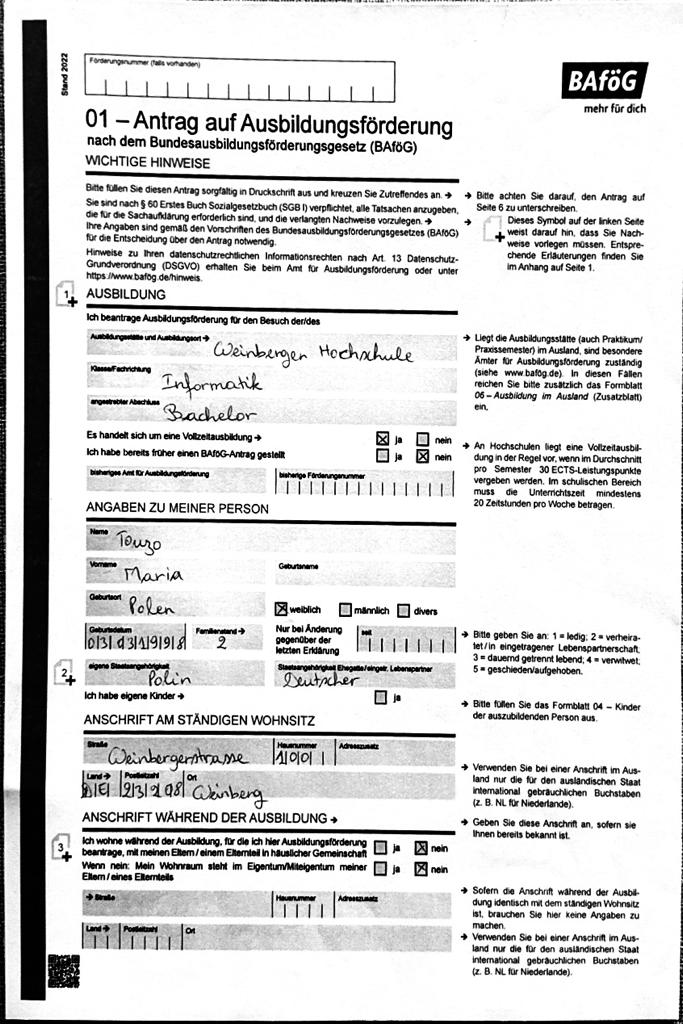 Stand 2022
Förderungsnummer (falls vorhanden)
BAföG
mehr für dich
01 – Antrag auf Ausbildungsförderung
nach dem Bundesausbildungsförderungsgesetz (BAföG)
WICHTIGE HINWEISE
Bitte füllen Sie diesen Antrag sorgfältig in Druckschrift aus und kreuzen Sie Zutreffendes an. →
Sie sind nach § 60 Erstes Buch Sozialgesetzbuch (SGB I) verpflichtet, alle Tatsachen anzugeben,
die für die Sachaufklärung erforderlich sind, und die verlangten Nachweise vorzulegen. →
Ihre Angaben sind gemäß den Vorschriften des Bundesausbildungsförderungsgesetzes (BAföG)
für die Entscheidung über den Antrag notwendig.
Hinweise zu Ihren datenschutzrechtlichen Informationsrechten nach Art. 13 Datenschutz-
Grundverordnung (DSGVO) erhalten Sie beim Amt für Ausbildungsförderung oder unter
https://www.bafög.de/hinweis.
→ Bitte achten Sie darauf, den Antrag auf
Seite 6 zu unterschreiben.
→ Dieses Symbol auf der linken Seite
weist darauf hin, dass Sie Nach-
weise vorlegen müssen. Entspre-
chende Erläuterungen finden Sie
im Anhang auf Seite 1.
1 AUSBILDUNG
Ich beantrage Ausbildungsförderung für den Besuch der/des
Ausbildungsstätte und Ausbildungsort → Weinberger Hochschule
Klasse/Fachrichtung Informatik
angestrebter Abschluss Bachelor
Es handelt sich um eine Vollzeitausbildung → ☒ ja ☐ nein
Ich habe bereits früher einen BAföG-Antrag gestellt ☐ ja ☒ nein
bisheriges Amt für Ausbildungsförderung bisherige Förderungsnummer
→ Liegt die Ausbildungsstätte (auch Praktikum/
Praxissemester) im Ausland, sind besondere
Ämter für Ausbildungsförderung zuständig
(siehe www.bafög.de). In diesen Fällen
reichen Sie bitte zusätzlich das Formblatt
06 – Ausbildung im Ausland (Zusatzblatt)
ein.
→ An Hochschulen liegt eine Vollzeitausbil-
dung in der Regel vor, wenn im Durchschnitt
pro Semester 30 ECTS-Leistungspunkte
vergeben werden. Im schulischen Bereich
muss die Unterrichtszeit mindestens
20 Zeitstunden pro Woche betragen.
ANGABEN ZU MEINER PERSON
Name Touzo
Vorname Maria Geburtsname
Geburtsort Polen ☒ weiblich ☐ männlich ☐ divers
Geburtsdatum 03931998 Familienstand → 2
Nur bei Änderung
gegenüber der
letzten Erklärung
seit
→ Bitte geben Sie an: 1 = ledig; 2 = verheira-
tet / in eingetragener Lebenspartnerschaft;
3 = dauernd getrennt lebend; 4 = verwitwet;
5 = geschieden/aufgehoben.
2 eigene Staatsangehörigkeit Polin Staatsangehörigkeit Ehegatte/eingetr. Lebenspartner Deutscher
Ich habe eigene Kinder → ☐ ja
→ Bitte füllen Sie das Formblatt 04 – Kinder
der auszubildenden Person aus.
ANSCHRIFT AM STÄNDIGEN WOHNSITZ
Straße Weinbergerstrasse Hausnummer 100 Adresszusatz
Land → DE Postleitzahl 23298 Ort Weinberg
→ Verwenden Sie bei einer Anschrift im Aus-
land nur die für den ausländischen Staat
international gebräuchlichen Buchstaben
(z. B. NL für Niederlande).
ANSCHRIFT WÄHREND DER AUSBILDUNG →
→ Geben Sie diese Anschrift an, sofern sie
Ihnen bereits bekannt ist.
3 Ich wohne während der Ausbildung, für die ich hier Ausbildungsförderung
beantrage, mit meinen Eltern / einem Elternteil in häuslicher Gemeinschaft ☐ ja ☒ nein
Wenn nein: Mein Wohnraum steht im Eigentum/Miteigentum meiner
Eltern / eines Elternteils ☐ ja ☒ nein
→ Straße Hausnummer Adresszusatz
Land → Postleitzahl Ort
→ Sofern die Anschrift während der Ausbil-
dung identisch mit dem ständigen Wohnsitz
ist, brauchen Sie hier keine Angaben zu
machen.
→ Verwenden Sie bei einer Anschrift im Aus-
land nur die für den ausländischen Staat
international gebräuchlichen Buchstaben
(z. B. NL für Niederlande).